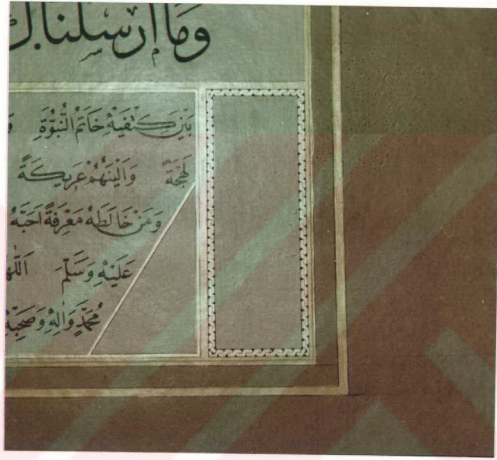 وَمَا أَرْسَلْنَاكَ
بَيْنَ كَتِفَيْهِ خَاتَمُ النُّبُوَّةِ
لَهْجَةً وَأَلْيَنُهُمْ عَرِيكَةً
وَمَنْ خَالَطَهُ مَعْرِفَةً أَحَبَّهُ
عَلَيْهِ وَسَلَّمَ اللّٰهُمَّ
مُحَمَّدٍ وَآلِهِ وَصَحْبِهِ